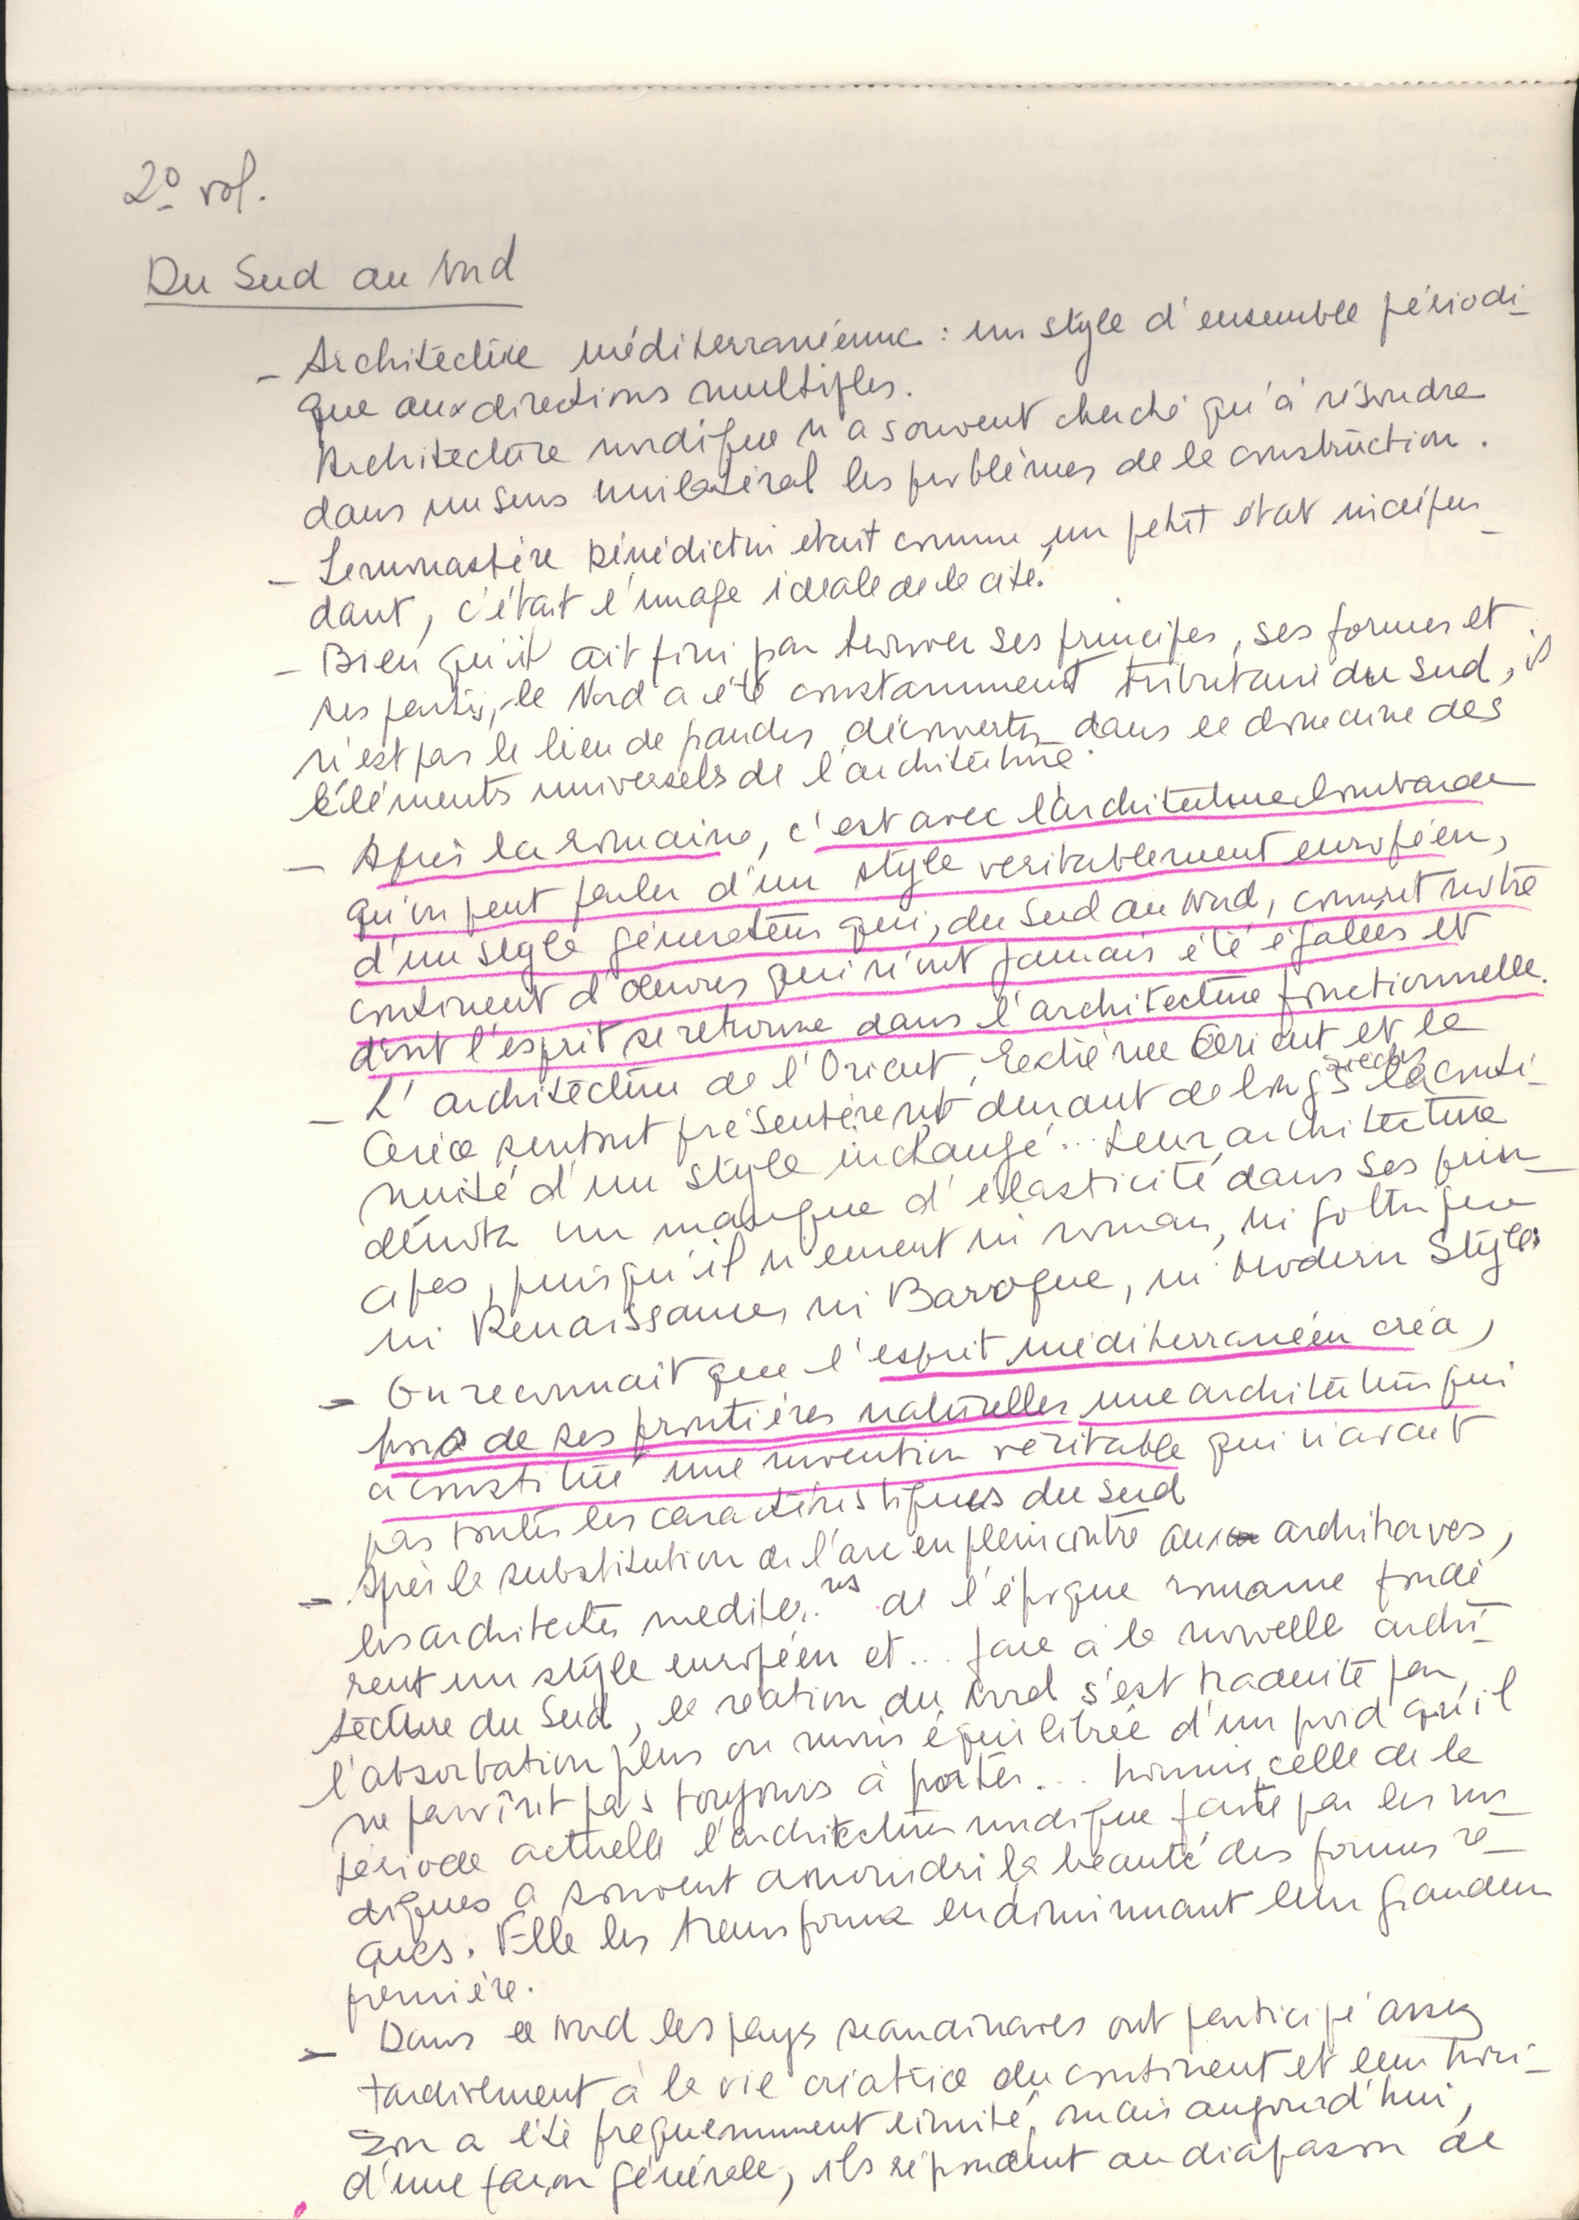 2º vol.
Du Sud au Nord
- Architecture méditerranéenne : un style d'ensemble périodi-
que aux directions multiples.
Architecture nordique n'a souvent cherché qu'à résoudre
dans un sens unilatéral les problèmes de le construction.
- Le monastère Bénédictin etait comme un petit état indépen-
dant, c'était l'image ideale de le cité.
- Bien qu'il ait fini par trouver ses principes, ses formes et
ses partis, le Nord a été constamment tributaire du Sud, il
n'est pas le lieu de grandes découvertes dans le domaine des
éléments universels de l'architecture.
- Après la romaine, c'est avec l'architecture lombarde
qu'on peut parler d'un style veritablement européen,
d'un style générateur qui, du Sud au Nord, couvrit notre
continent d'œuvres qui n'ont jamais été égalées et
dont l'esprit se retrouve dans l'architecture fonctionnelle.
- L'architecture de l'Orient, Extrême Orient et la
Grèce surtout présentèrent durant de longs siècles la conti-
nuité d'un style inchangé... Leur architecture
dénote un manque d'élasticité dans ses prin-
cipes, puisqu'il n'eurent ni roman, ni gothique
ni Renaissance, ni Baroque, ni Modern Style.
- On reconnait que l'esprit méditerranéen créa,
hors de ses frontières naturelles une architecture qui
a constitué une invention véritable qui n'avait
pas toutes les caractéristiques du Sud
- Après le substitution de l'arc en plein cintre aux architraves,
les architectes mediter.res de l'époque romane fondè
rent un style européen et... face à le nouvelle archi-
tecture du Sud, le réation du Nord s'est traduite par
l'absorbation plus ou moins équilibrée d'un poid qu'il
ne parvînt pas toujours à porter... hormis celle de le
période actuelle l'architecture nordique faite par les nor-
diques a souvent amoindri la beauté des formes re-
çues. Elle les transforma en diminuant leur grandeur
première.
- Dans le Nord les pays scandinaves ont participé assez
tardivement à le vie créatrice du continent et leur hori-
zon a été frequemment limité, mais aujourd'hui,
d'une façon générale, ils répondent au diapason de